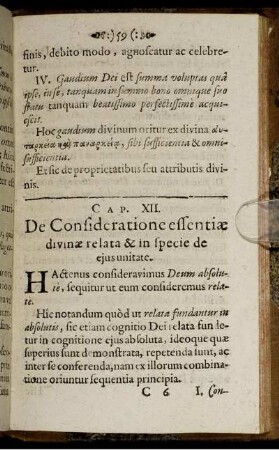 )59(
finis, debito modo, agnoscatur ac celebre-
tur.
IV. Gaudium Dei est summa voluptas quâ
ipse, in se, tanquam in summo bono omnique suo
statu tanquam beatissimo perfectissimè acqui-
escit.
Hoc gaudium divinum oritur ex divina αυ-
ταρκεια και παναρκεια, sibi sufficientia & omni-
sufficientia.
Et sic de proprietatibus seu attributis divi-
nis.
CAP. XII.
De Consideratione essentiæ
divinæ relata & in specie de
ejus unitate.
HActenus consideravimus Deum absolu-
tè, sequitur ut eum consideremus rela-
te.
Hic notandum quòd ut relata fundantur in
absolutis, sic etiam cognitio Dei relata fun de-
tur in cognitione ejus absoluta, ideoque quæ
superius sunt demonstrata, repetenda sunt, ac
inter se conferenda, nam ex illorum combina-
tione oriuntur sequentia principia.
C 6 I. Con-